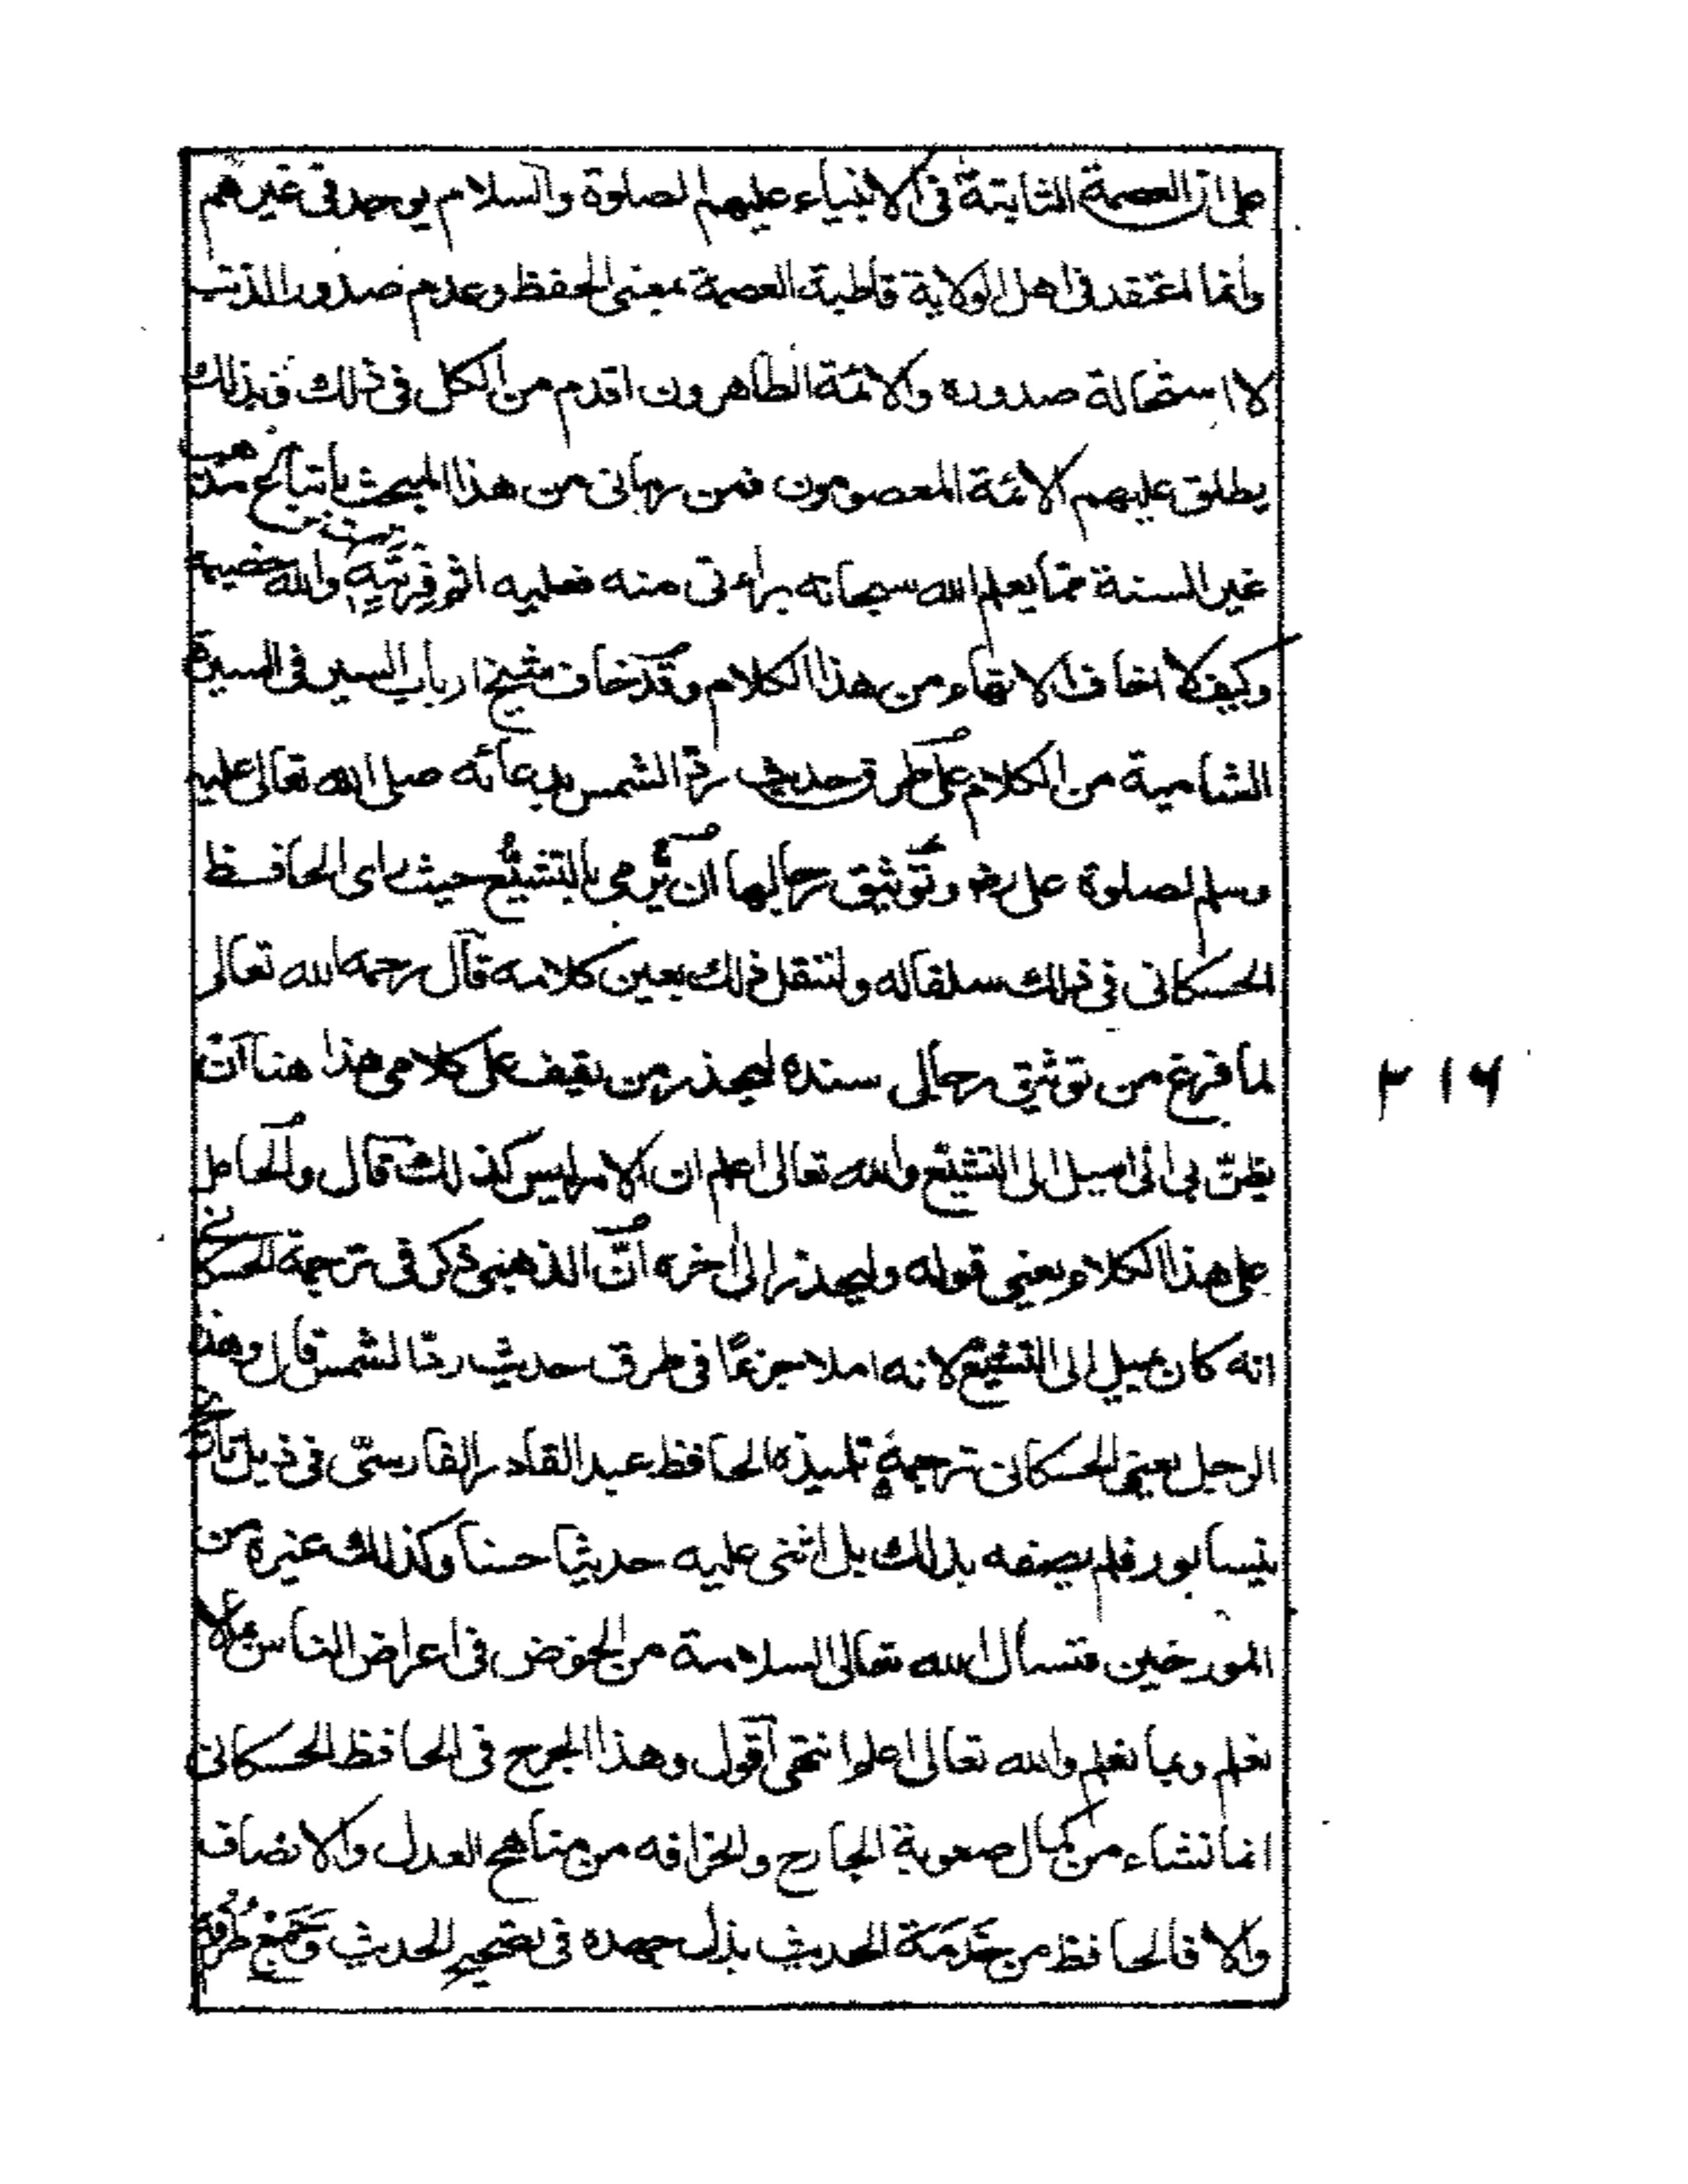 على ان العصمة الثابتة فى الانبياء عليهم الصلوة والسلام يوجد فى غيرهم
وانما اعتقد فى اهل الولاية قاطبة العصمة بمعنى الحفظ وعدم صدور الذنب
لا استحالة صدوره والائمة الطاهرون اقدم من الكل فى ذلك فبذلك
يطلق عليهم الائمة المعصومون فمن رمانى من هذا المبحث باتباع مذهب
غير السنة مما يعلم الله سبحانه براءتى منه فعليه اثم فريته والله خصيمه
وكيف لا اخاف الاتهام من هذا الكلام وقد خاف شيخ ارباب السير فى السيرة
الشامية من الكلام على طرق حديث رد الشمس بدعائه صلى الله تعالى عليه
وسلم لصلوة على رضه وتوثيق رجالها ان يرمى بالتشيع حيث راى الحافظ
الحسكانى فى ذلك سلفا له ولننقل ذلك بعين كلامه قال رحمه الله تعالى
لما فرغ من توثيق رجال سنده ليحذر من يقف على كلامى هذا هنا ان
يظن بى انى اميل الى التشيع والله تعالى اعلم ان الامر ليس كذلك قال والحامل
على هذا الكلام يعنى قوله وليحذر الى اخره ان الذهبى ذكر فى ترجمة الحسكانى
انه كان يميل الى التشيع لانه املا جزءا فى طرق حديث رد الشمس قال وهذا
الرجل يعنى الحسكانى ترجمه تلميذه الحافظ عبد القادر الفارسى فى ذيل تاريخ
نيسابور فلم يصفه بذلك بل اثنى عليه حديثا حسنا وكذلك غيره من
المورخين فنسأل الله تعالى السلامة من الخوض فى اعراض الناس بما لا
نعلم وبما نعلم والله تعالى اعلم انتهى اقول وهذا الجرح فى الحافظ الحسكانى
انما نشاء من كمال صعوبة الجارح وانحرافه من مناهج العدل والانصاف
والا فالحافظ من خدمة الحديث بذل جهده فى تصحيح الحديث وجمع طرقه
٢١٦